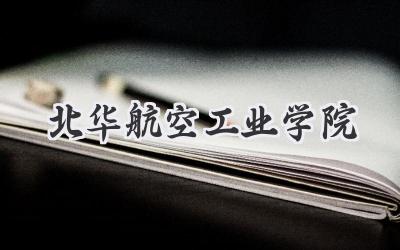 北华航空工业学院